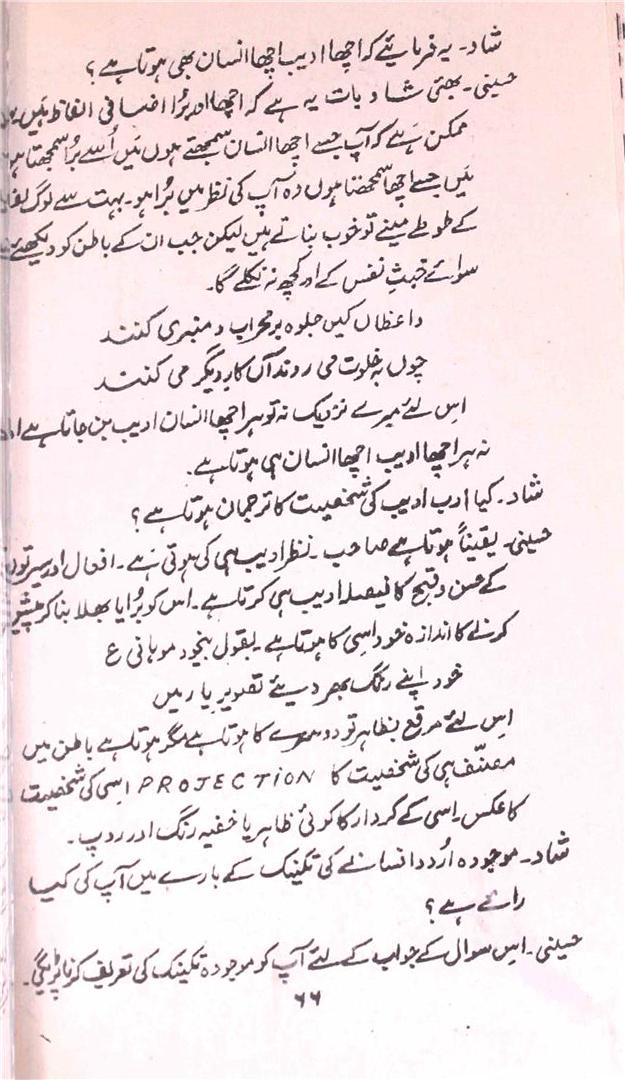 شاد۔ یہ فرمایئے کہ اچھا ادیب اچھا انسان بھی ہوتا ہے؟
حسینی۔ بھئی شاد بات یہ ہے کہ اچھا اور بُرا اضافی الفاظ ہیں۔
ممکن ہے کہ آپ جسے اچھا انسان سمجھتے ہوں میں اُسے بُرا سمجھتا
میں جسے اچھا سمجھتا ہوں وہ آپ کی نظر میں بُرا ہو۔ بہت سے لوگ
کے طوطے مینے تو خوب بناتے ہیں لیکن جب ان کے باطن کو دیکھئے
سوائے خبثِ نفس کے اور کچھ نہ نکلے گا۔
واعظاں کیں جلوہ بر محراب و منبری کنند
چوں بہ خلوت می روند آں کار دیگر می کنند
اس لئے میرے نزدیک نہ تو ہر اچھا انسان ادیب بن جاتا ہے
نہ ہر اچھا ادیب اچھا انسان ہی ہوتا ہے۔
شاد۔ کیا ادب ادیب کی شخصیت کا ترجمان ہوتا ہے؟
حسینی۔ یقیناً ہوتا ہے صاحب۔ نظر ادیب ہی کی ہوتی ہے۔ افعال اور سیرتوں
کے حسن و قبح کا فیصلہ ادیب ہی کرتا ہے۔ اس کو بُرا یا بھلا بنا کر پیش
کرنے کا اندازہ خود اسی کا ہوتا ہے۔ بقول بیخود موہانی ع
خود اپنے رنگ بھر دیئے تصویر یار میں
اس لئے مرقع بظاہر تو دوسرے کا ہوتا ہے مگر ہوتا ہے باطن میں
مصنّف ہی کی شخصیت کا PROJECTION اسی کی شخصیت
کا عکس۔ اسی کے کردار کا کوئی ظاہر یا خفیہ رنگ اور روپ۔
شاد۔ موجودہ اُردو افسانے کی تکنیک کے بارے میں آپ کی کیا
رائے ہے؟
حسینی۔ اس سوال کے جواب کے لئے آپ کو موجودہ تکنیک کی تعریف کرنا پڑیگی۔
۶۶